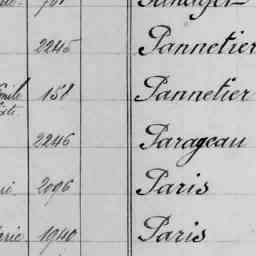 2245 Pannetier
158 Pannetier
2246 Parageau
2096 Paris
1940 Paris